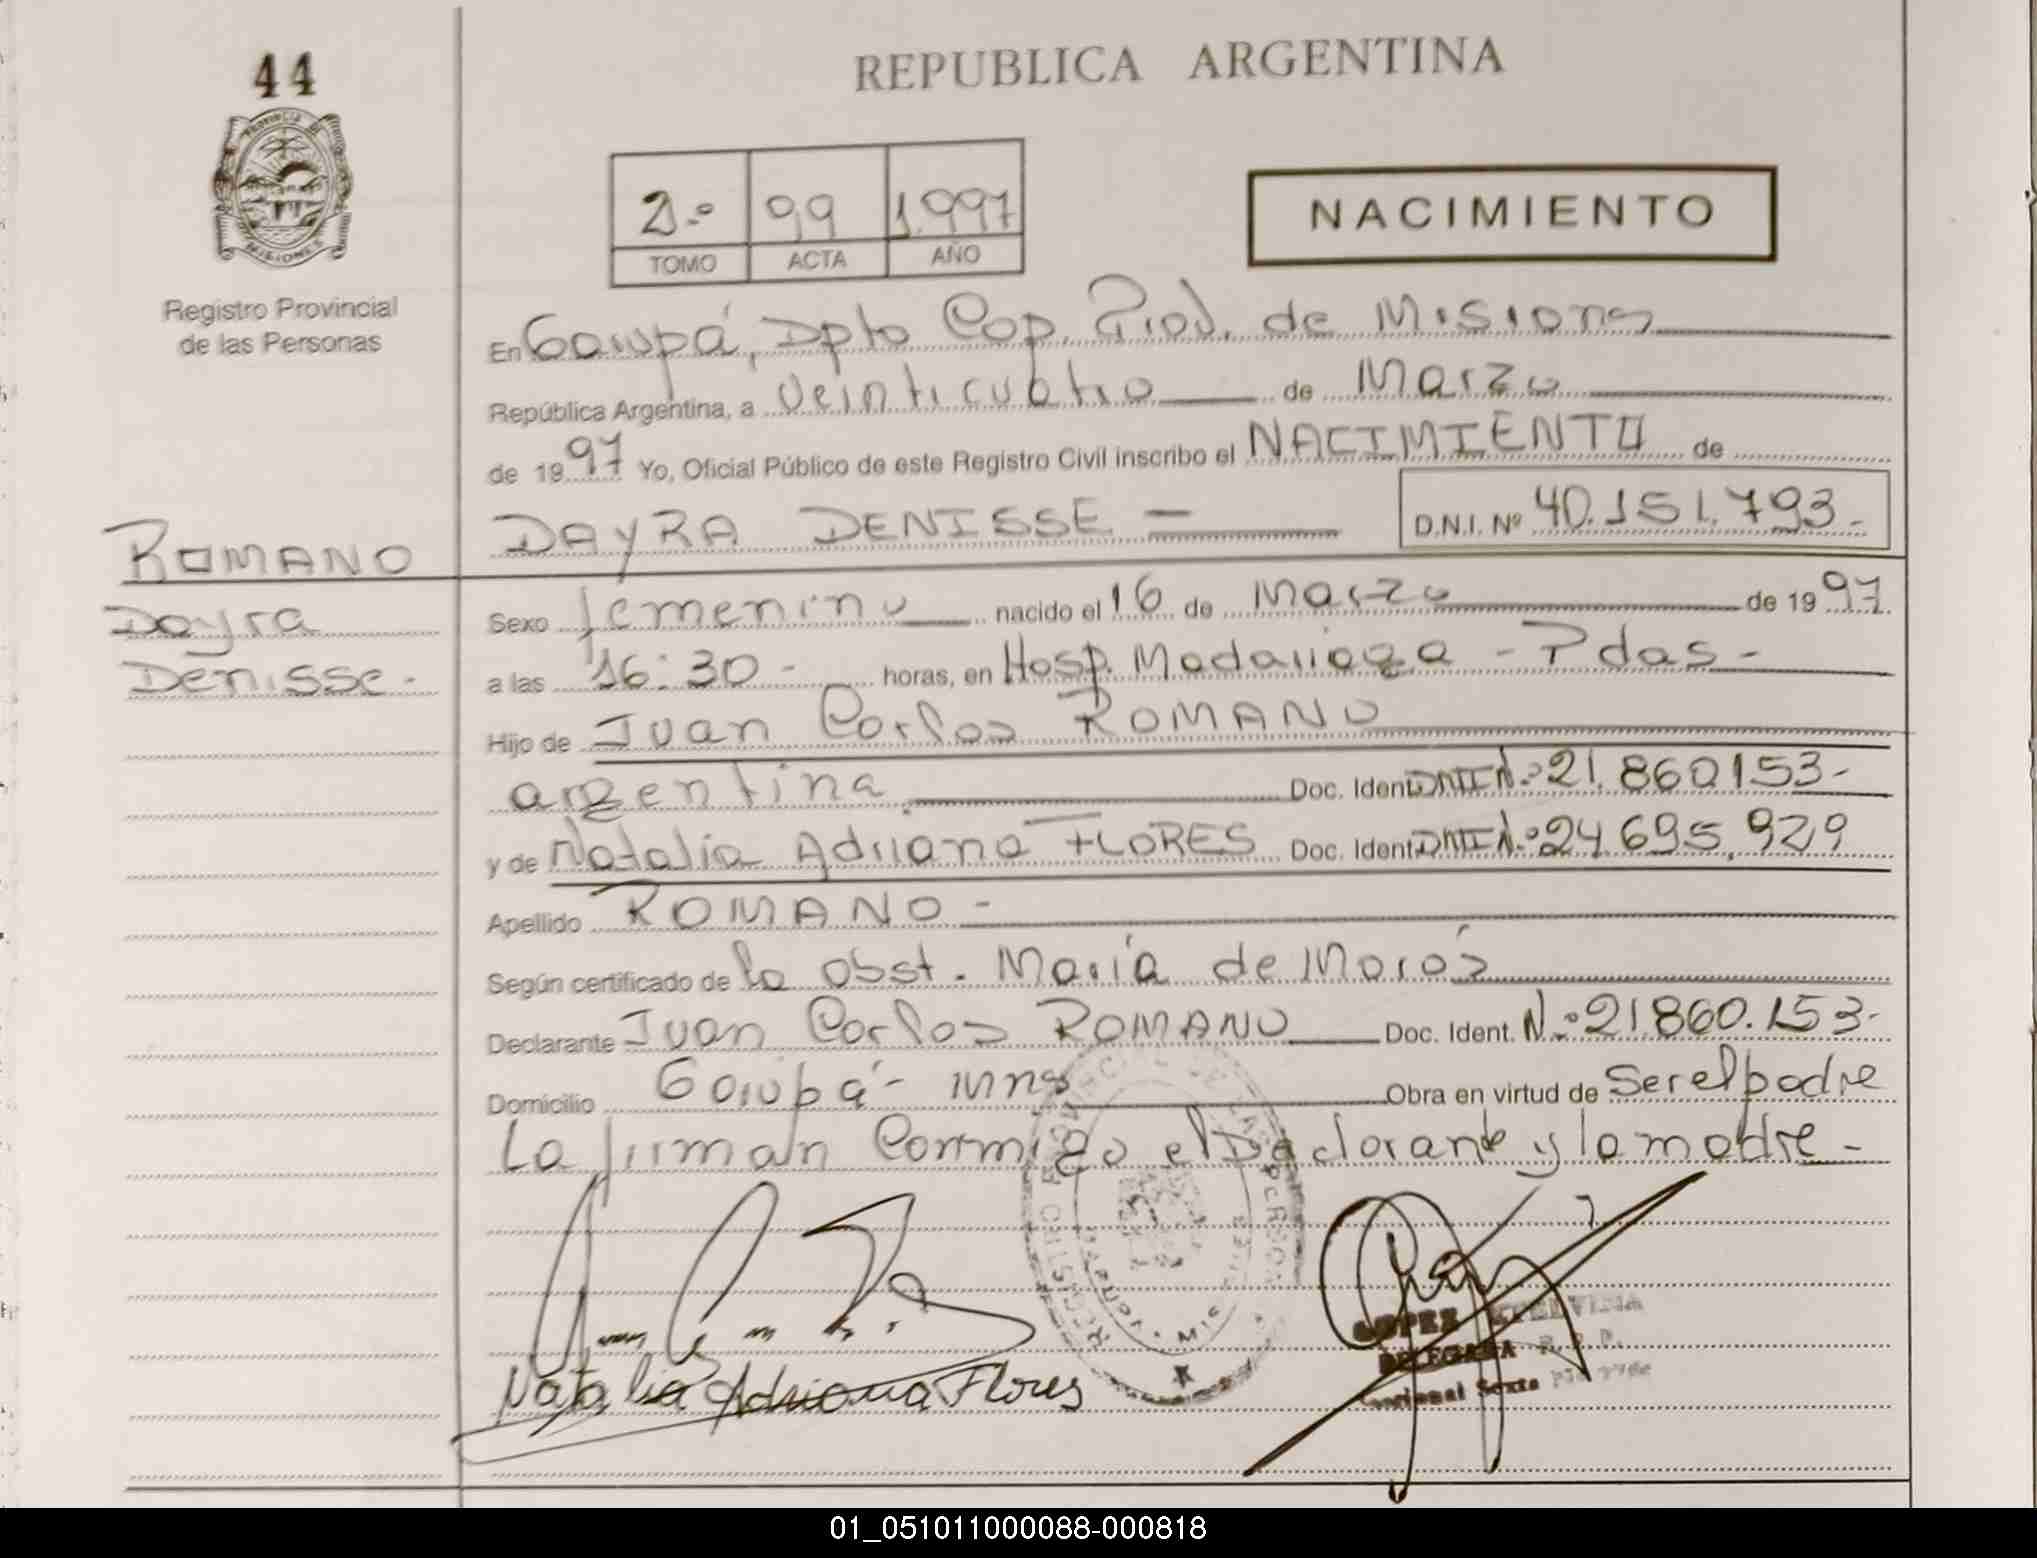 44
REPUBLICA ARGENTINA
PROVINCIA DE
MISIONES
Registro Provincial
de las Personas
2.º 99 1.997
TOMO ACTA AÑO
NACIMIENTO
En Garupá, Dpto Cap. Prov. de Misiones
República Argentina, a veinticuatro de Marzo
de 1997 Yo, Oficial Público de este Registro Civil inscribo el NACIMIENTO de
ROMANO
Dayra
Denisse.
DAYRA DENISSE — D.N.I. Nº 40.151.793.-
Sexo femenino nacido el 16 de Marzo de 1997
a las 16:30- horas, en Hosp. Madariaga - Pdas -
Hijo de Juan Carlos ROMANO
argentina Doc. Ident. DNI N.º 21.860153-
y de Natalia Adriana FLORES Doc. Ident. DNI N.º 24.695.929
Apellido ROMANO -
Según certificado de la obst. María de
Declarante Juan Carlos ROMANO Doc. Ident. N.º 21.860.153-
Domicilio Garupá - Mnes Obra en virtud de Ser el padre
La firman Conmigo el Declarante y la madre -
Natalia Adriana Flores
LOPEZ ETELVINA
DELEGADA R. P. P.
Seccional Sexta
01_051011000088-000818